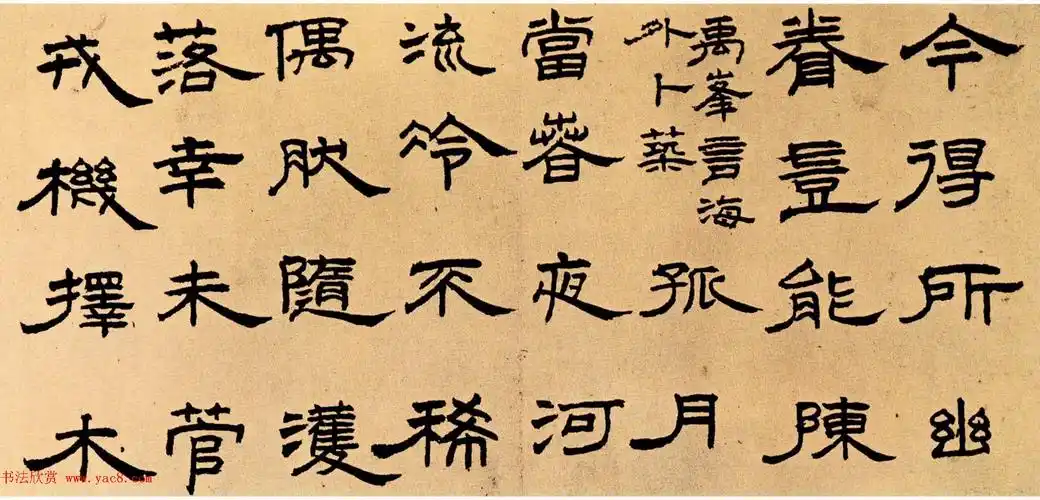 今得所幽
眷豈能陳
禹峯言海
外卜築
孤月
當春夜河
流冷不稀
偶耽隨濩
落幸未管
戎機擇木
书法欣赏 www.yac8.com